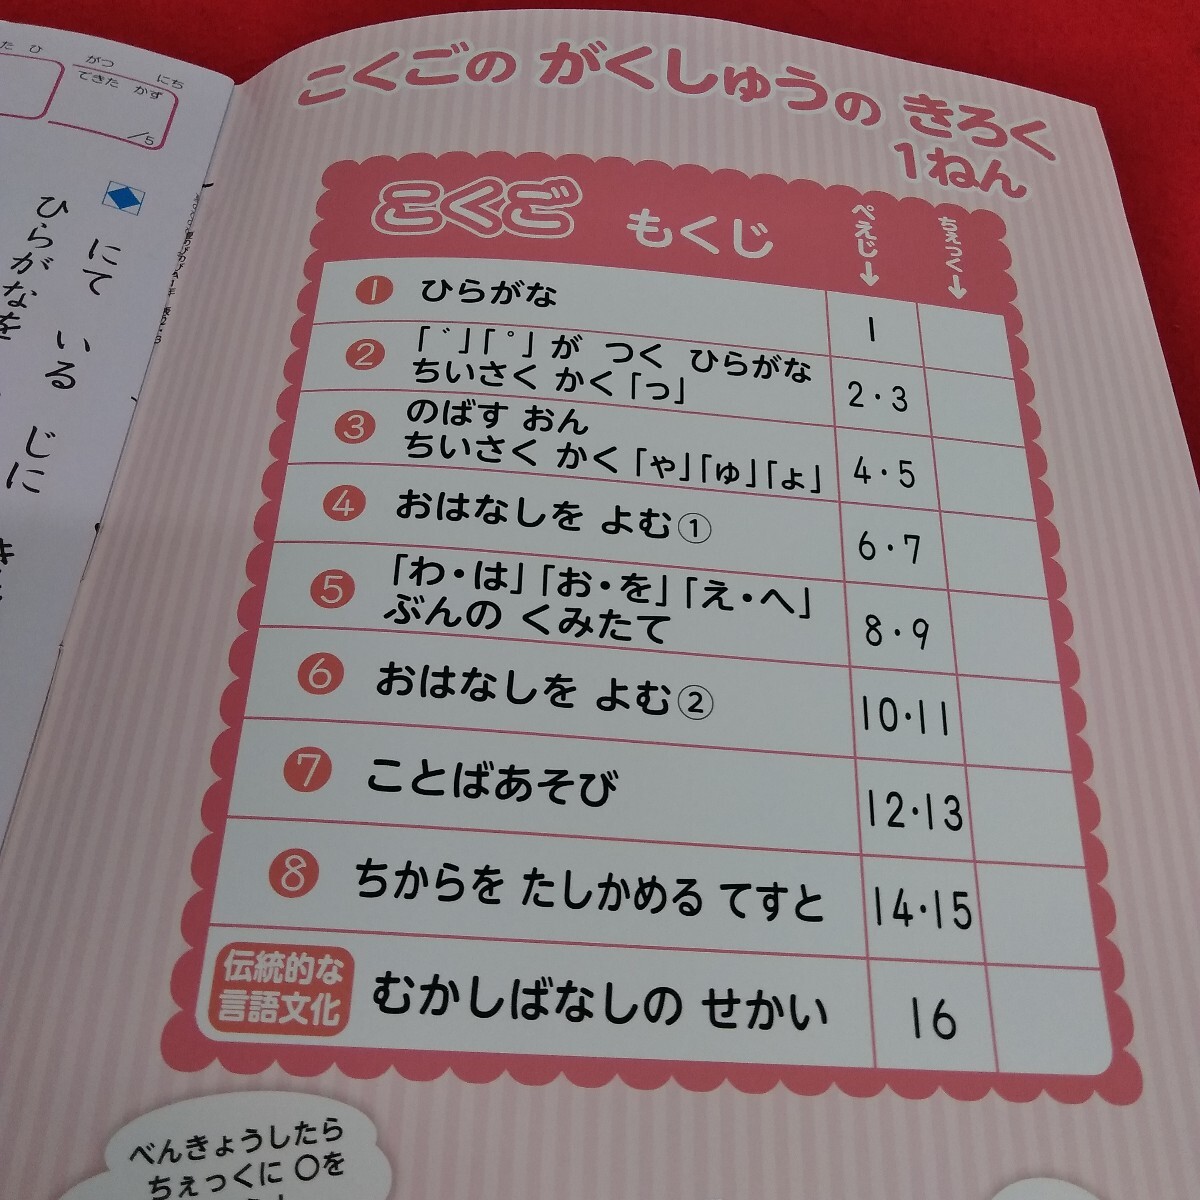 こくごの がくしゅうの きろく
1ねん
こくご もくじ
ぺえじ↓
ちぇっく↓
1 ひらがな 1
2 「゛」「゜」が つく ひらがな
ちいさく かく「っ」 2・3
3 のばす おん
ちいさく かく「ゃ」「ゅ」「ょ」 4・5
4 おはなしを よむ① 6・7
5 「わ・は」「お・を」「え・へ」
ぶんの くみたて 8・9
6 おはなしを よむ② 10・11
7 ことばあそび 12・13
8 ちからを たしかめる てすと 14・15
伝統的な
言語文化
むかしばなしの せかい 16
べんきょうしたら
ちぇっくに ○を
がつ にち
できた かず
/5
にて いる じに
ひらがなを